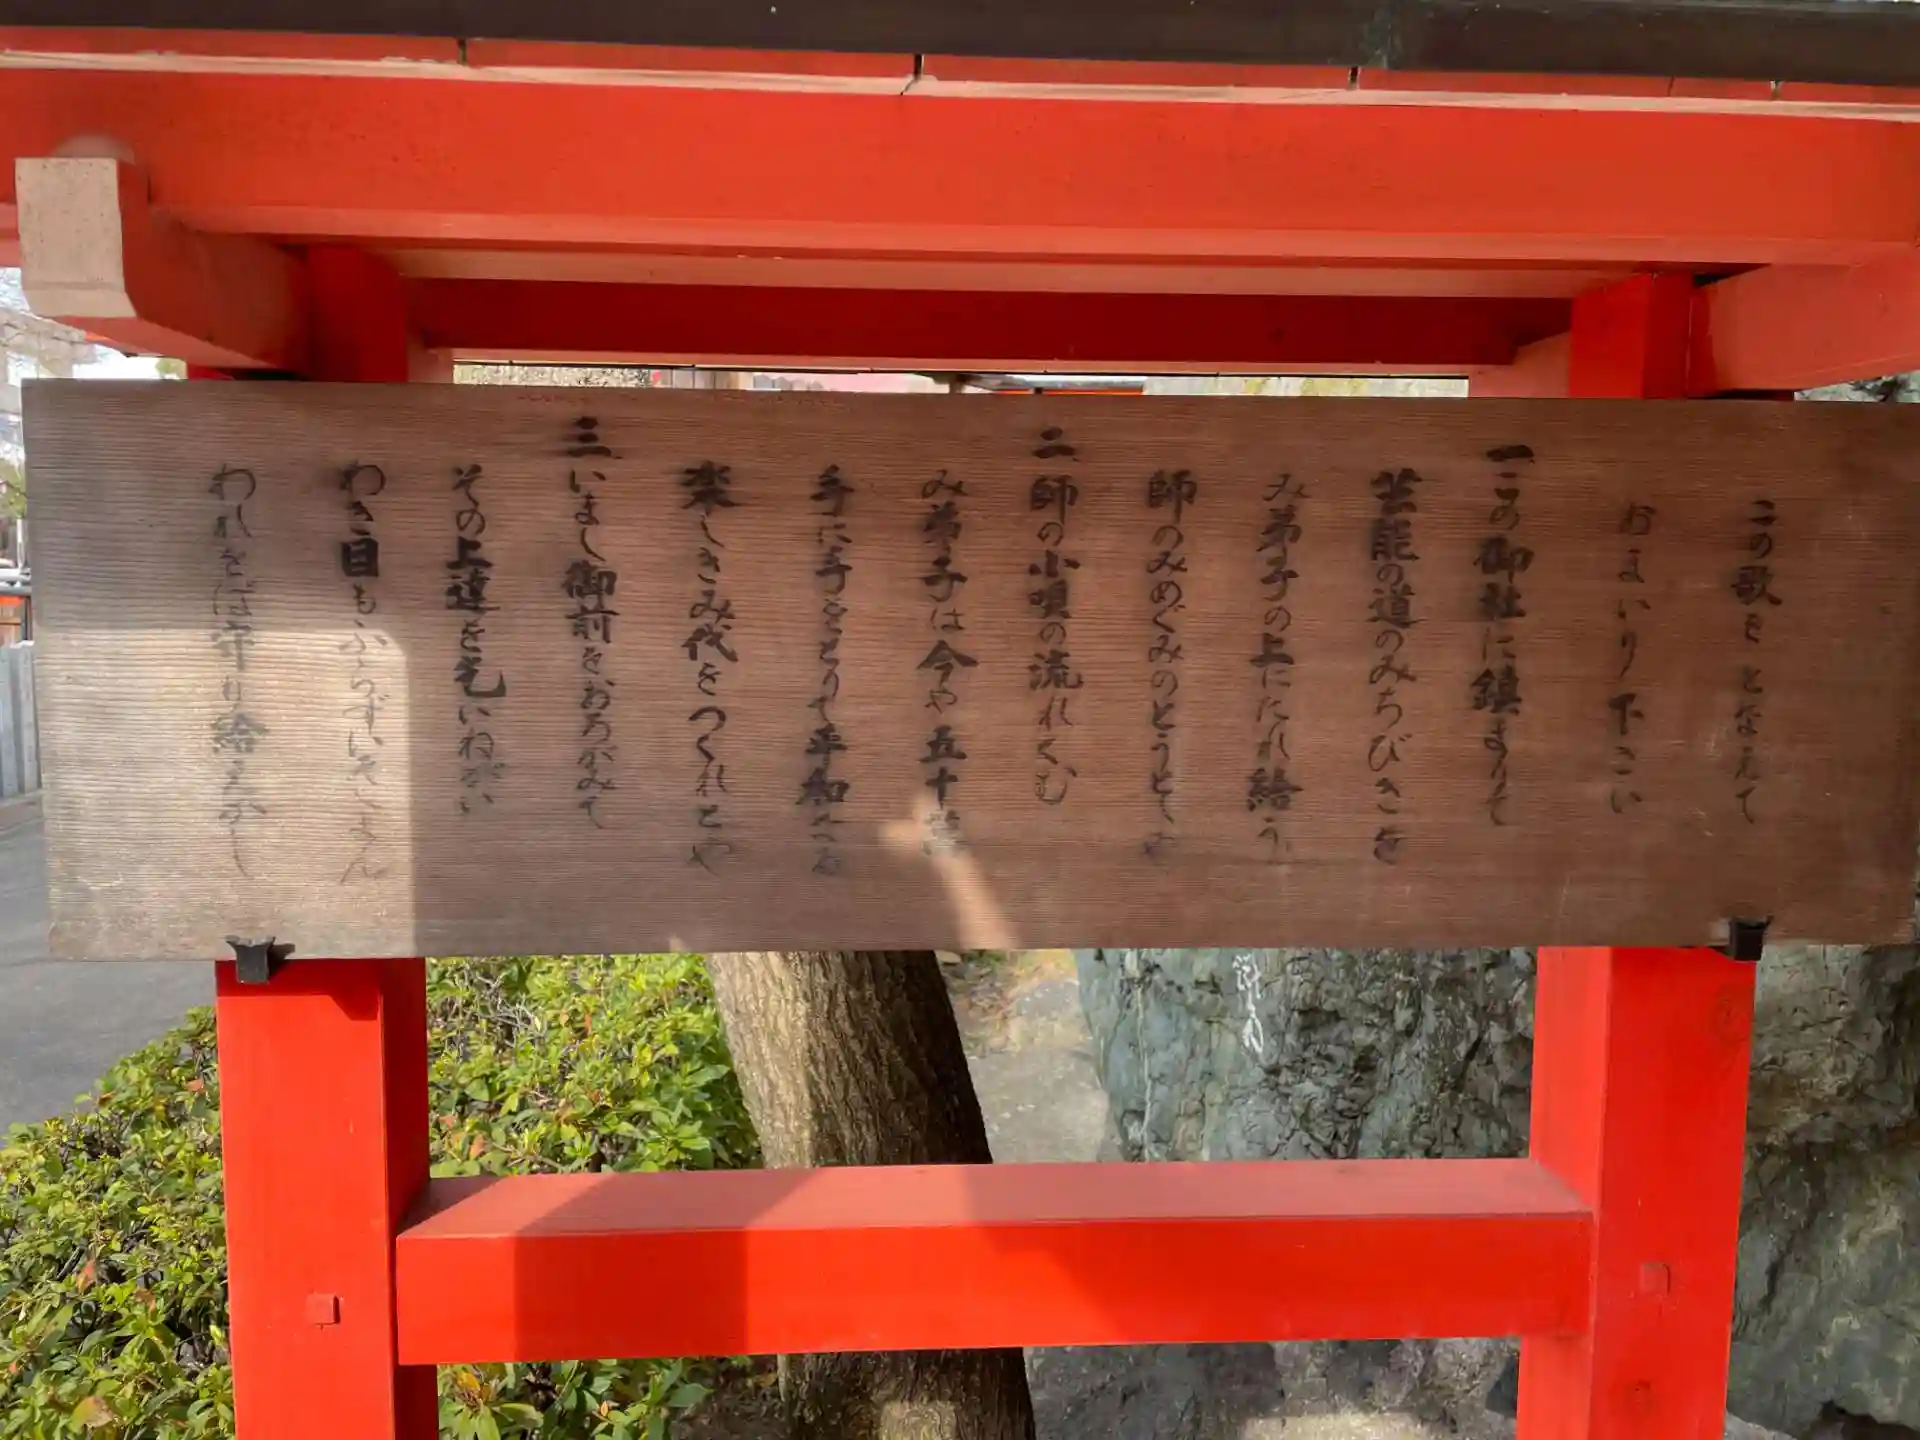 この歌をとなえて
おまいり下さい
一 この御社に鎮まりて
芸能の道のみちびきを
み弟子の上にたれ給う
師のみめぐみのとうとしや
二 師の小唄の流れくむ
み弟子は今や五十萬
手に手をとりて平和なる
楽しきみ代をつくれとや
三 いまし御前をおろがみて
その上達を乞いねがい
わき目もふらずいそしまん
われをば守り給えかし